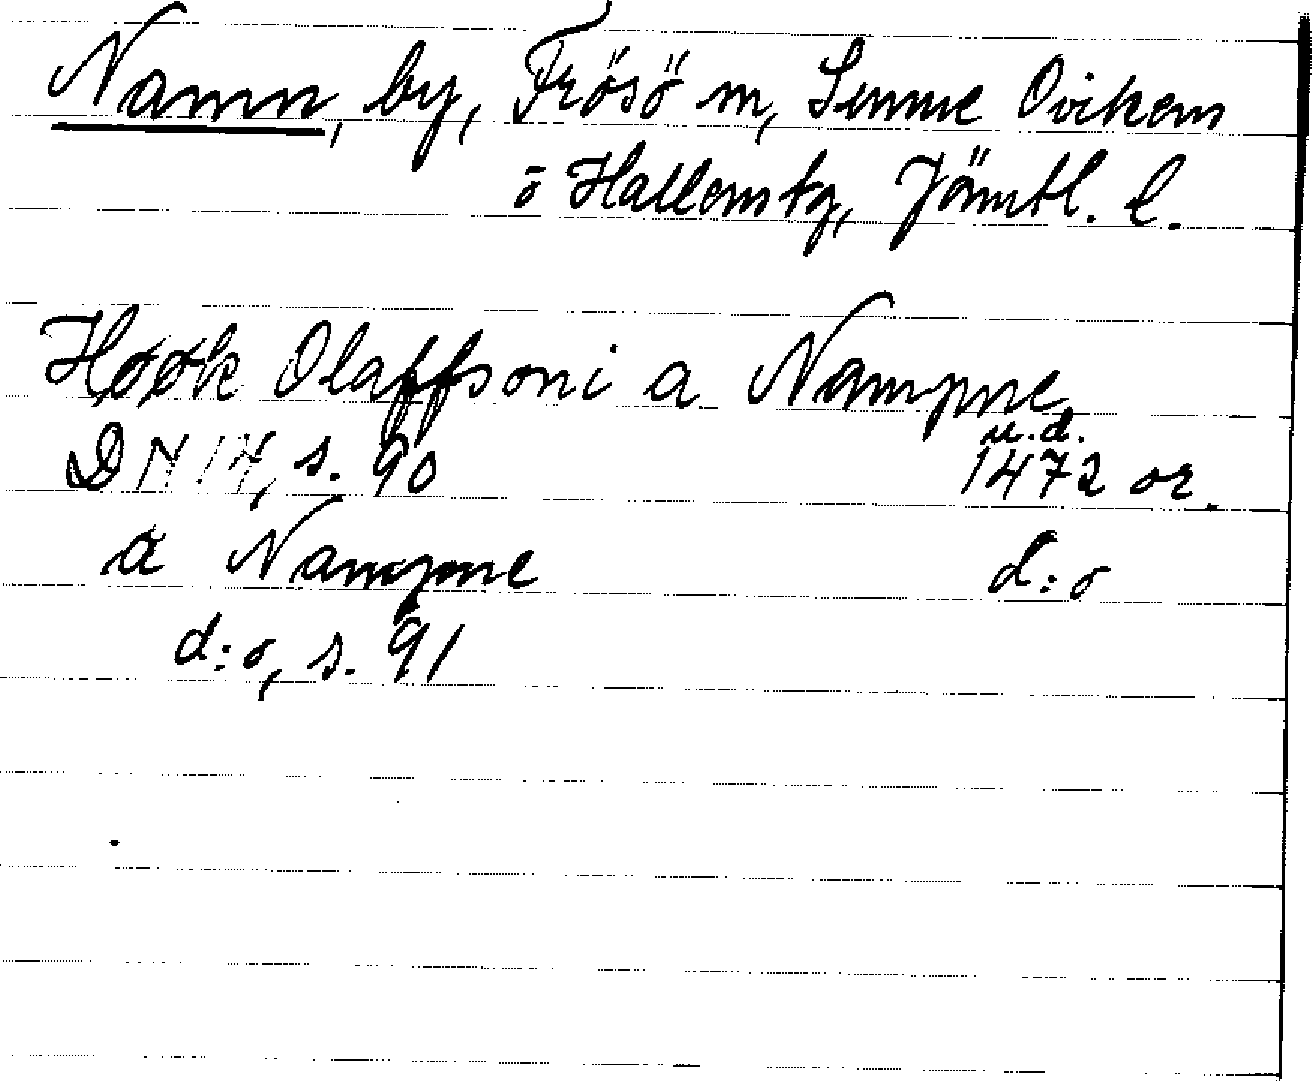 Namn, by, Frösö m, Sunne Ovikens
o Hallens tg, Jämtl. l.
Høøk Olaffsoni a Nampne
u.d.
DN 14, s. 90 1472 or.
a Nampne d:o
d:o, s. 91